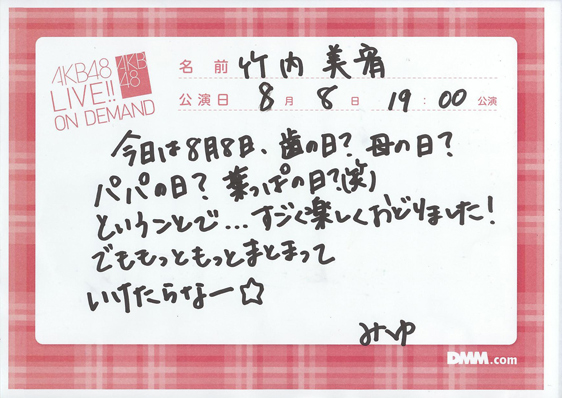 AKB48
LIVE!!
ON DEMAND
AKB
48
名 前 竹内 美宥
公演日 8月 8日 19:00 公演
今日は8月8日、歯の日?母の日?
パパの日?葉っぱの日?(笑)
ということで...すごく楽しくおどりました!
でももっともっとまとまって
いけたらなー☆
みゆ
DMM.com